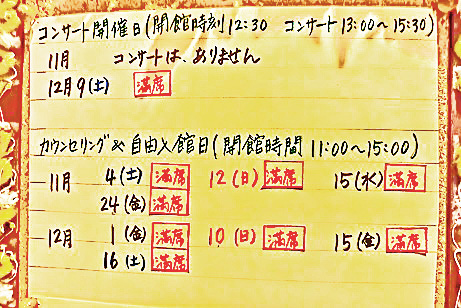 コンサート開催日(開館時刻12:30 コンサート13:00～15:30)
11月 コンサートは、ありません
12月9(土) 満席
カウンセリング&自由入館日(開館時間11:00～15:00)
11月 4(土) 満席 12(日) 満席 15(水) 満席
24(金) 満席
12月 1(金) 満席 10(日) 満席 15(金) 満席
16(土) 満席